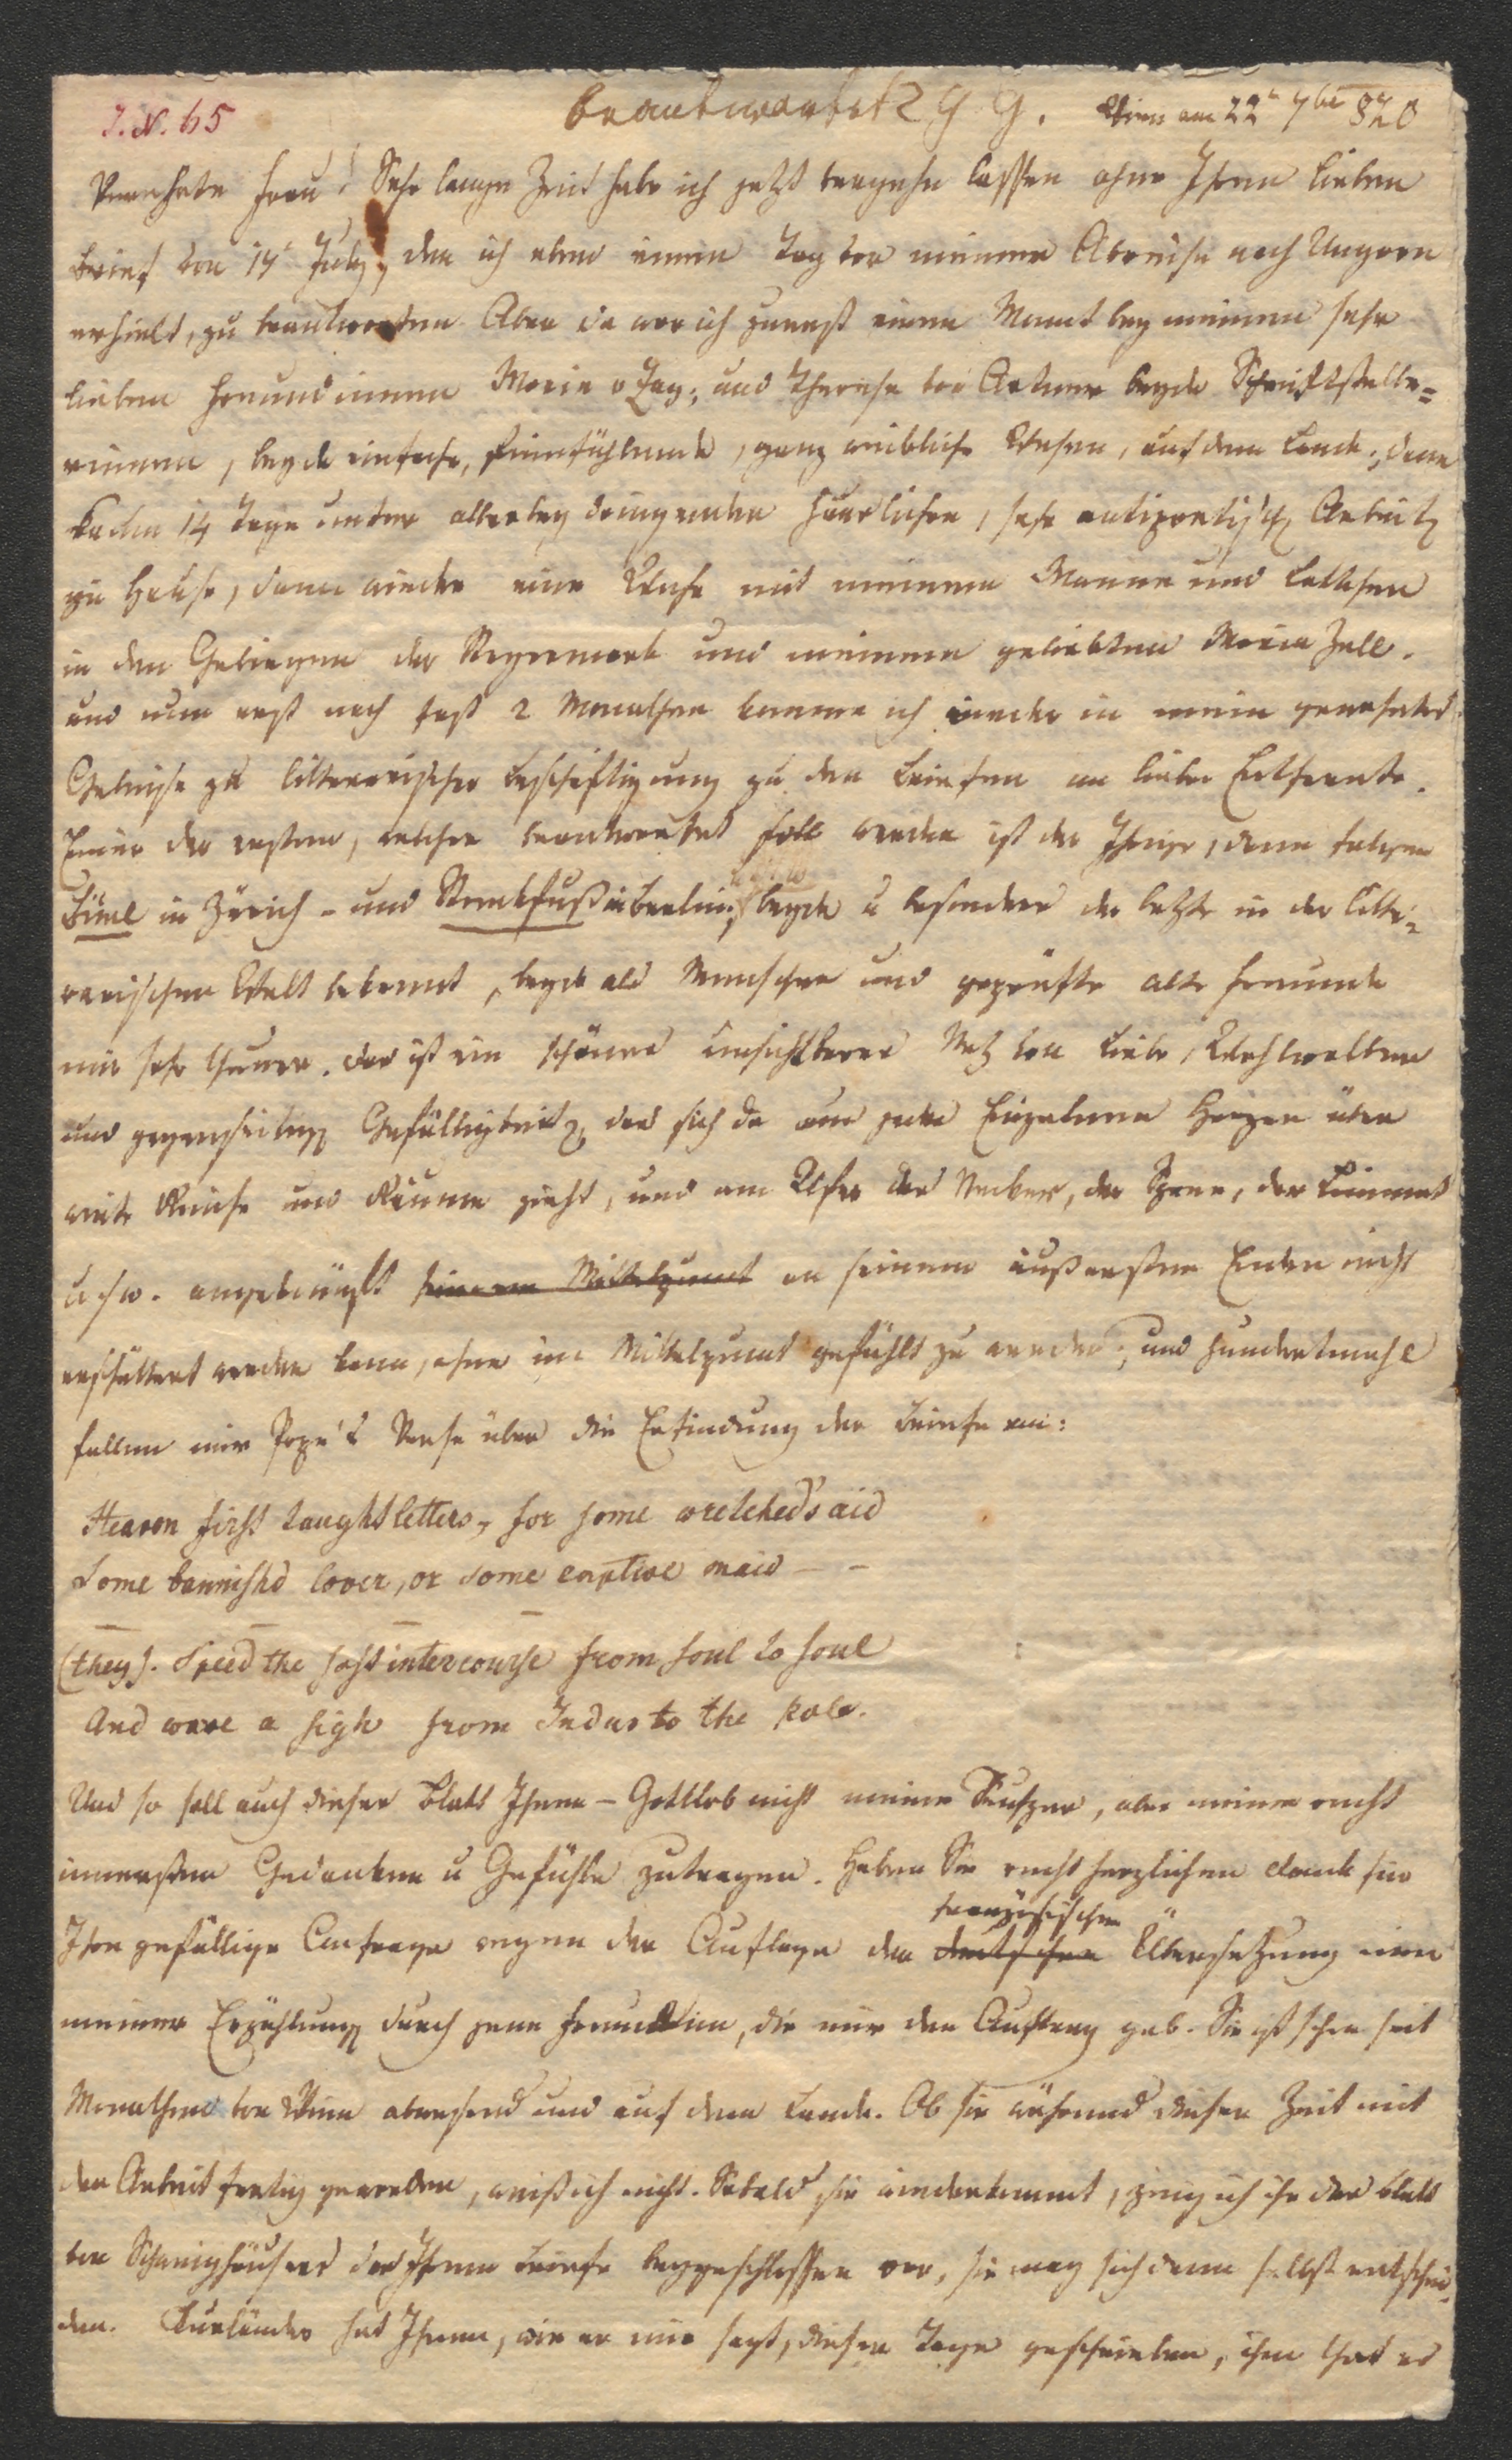 I. N. 65
beantwortet 2 9 9. Wien am 22t 7ber 820
Verehrte Frau! Sehr lange Zeit habe ich jetzt vergehn lassen ohne Ihren lieben
Brief von 14t July, den ich eben einen Tag vor meiner Abreise nach Ungarn
erhielt, zu beantworten. Aber da war ich zuerst einen Monat bey meinen sehr
lieben Freundinnen Marie v Zay, und Therese von Artner beyde Schriftstelle=
rinnen, beyde einfache, feinfühlende, ganz weibliche Wesen, auf dem Lande, dann
kaum 14 Tage unter allerley dringenden häuslichen, sehr antipoetisch Arbeit
zu Hause, dann wieder eine Reise mit meinem Manne und
in den Gebirgen der Steyermark und meinem geliebten Maria Zell.
und nun erst nach fast 2 Monathen komme ich wieder in mein gewohntes
Geleise zu litterarischer Beschäftigung zu den Briefen an liebe Entfernte.
Einer der ersten, welcher beantwortet soll werden ist der Ihrige, dann folgen
in Zürich - und Streckfuß in Berlin, beyde u besonders der letzte in der litte=
rarischen Welt bekannt, beyde als Menschen und geprüfte alte Freunde
mir sehr theuer. das ist ein schönes unsichtbares Netz von Liebe, Wohlwollen
und gegenseitig Gefälligkeit, das sich da von jedem Einzelnen Herzen über
weite Reiche und Räume zieht, und am Ufer des Neckars, der Spree, der Limmat
u. s w. angeknüpft seinem Mittelpunct an seinem äußersten Enden nicht
erschüttert werden kann, ohne im Mittelpunct gefühlt zu werden; und hundertmahl
fallen mir Pope's Verse über die Erfindung der Briefe ein:
Heaven first taught letters, for some wretched's aid
Some bannish'd lover, or some captive maid - -
(they). Speed the soft intercourse from soul to soul
And wave a sigh from Indus to the pole.
Und so soll auch dieses Blatt Ihnen - Gottlob nicht meine Seufzer, aber meine recht
innersten Gedanken u Gefühle zutragen. Haben Sie recht herzlichen Dank für
Ihre gefällige Anfrage wegen der Auflage der deutschen französischen Übersetzung von
meiner Erzählung durch jene Freundin, die mir den Auftrag gab. Sie ist schon seit
Monathen von Wien abwesend und auf dem Lande. Ob sie während dieser Zeit mit
der Arbeit fertig geworden, weiß ich nicht. Sobald sie wiederkommt, zeig ich ihr das Blatt
von Schweighäuser das Ihrem Briefe beygeschlossen war, sie mag sich dann selbst entschei=
den. Kurländer hat Ihnen, wie er mir sagt, dieser Tage geschrieben, ihm that es